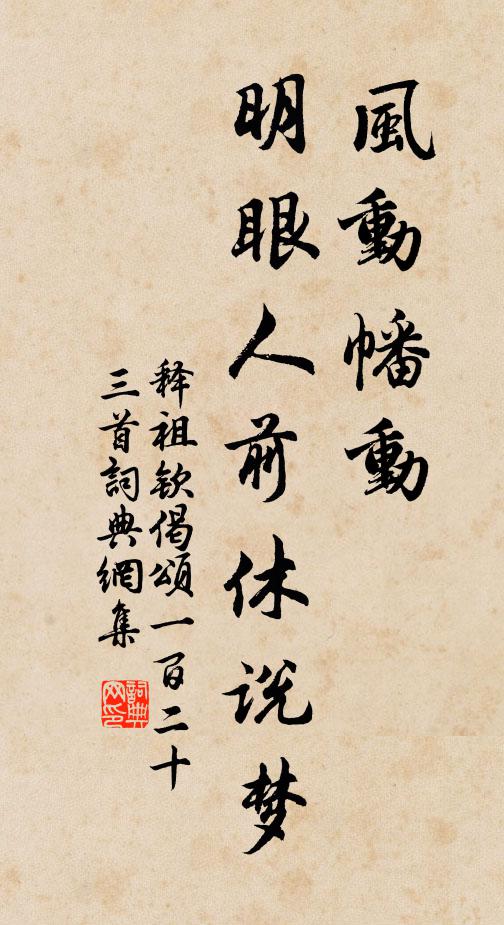 風動幡動
明眼人前休説梦
释祖钦偈頌一百二十
三首詞典網集
詞典
网印